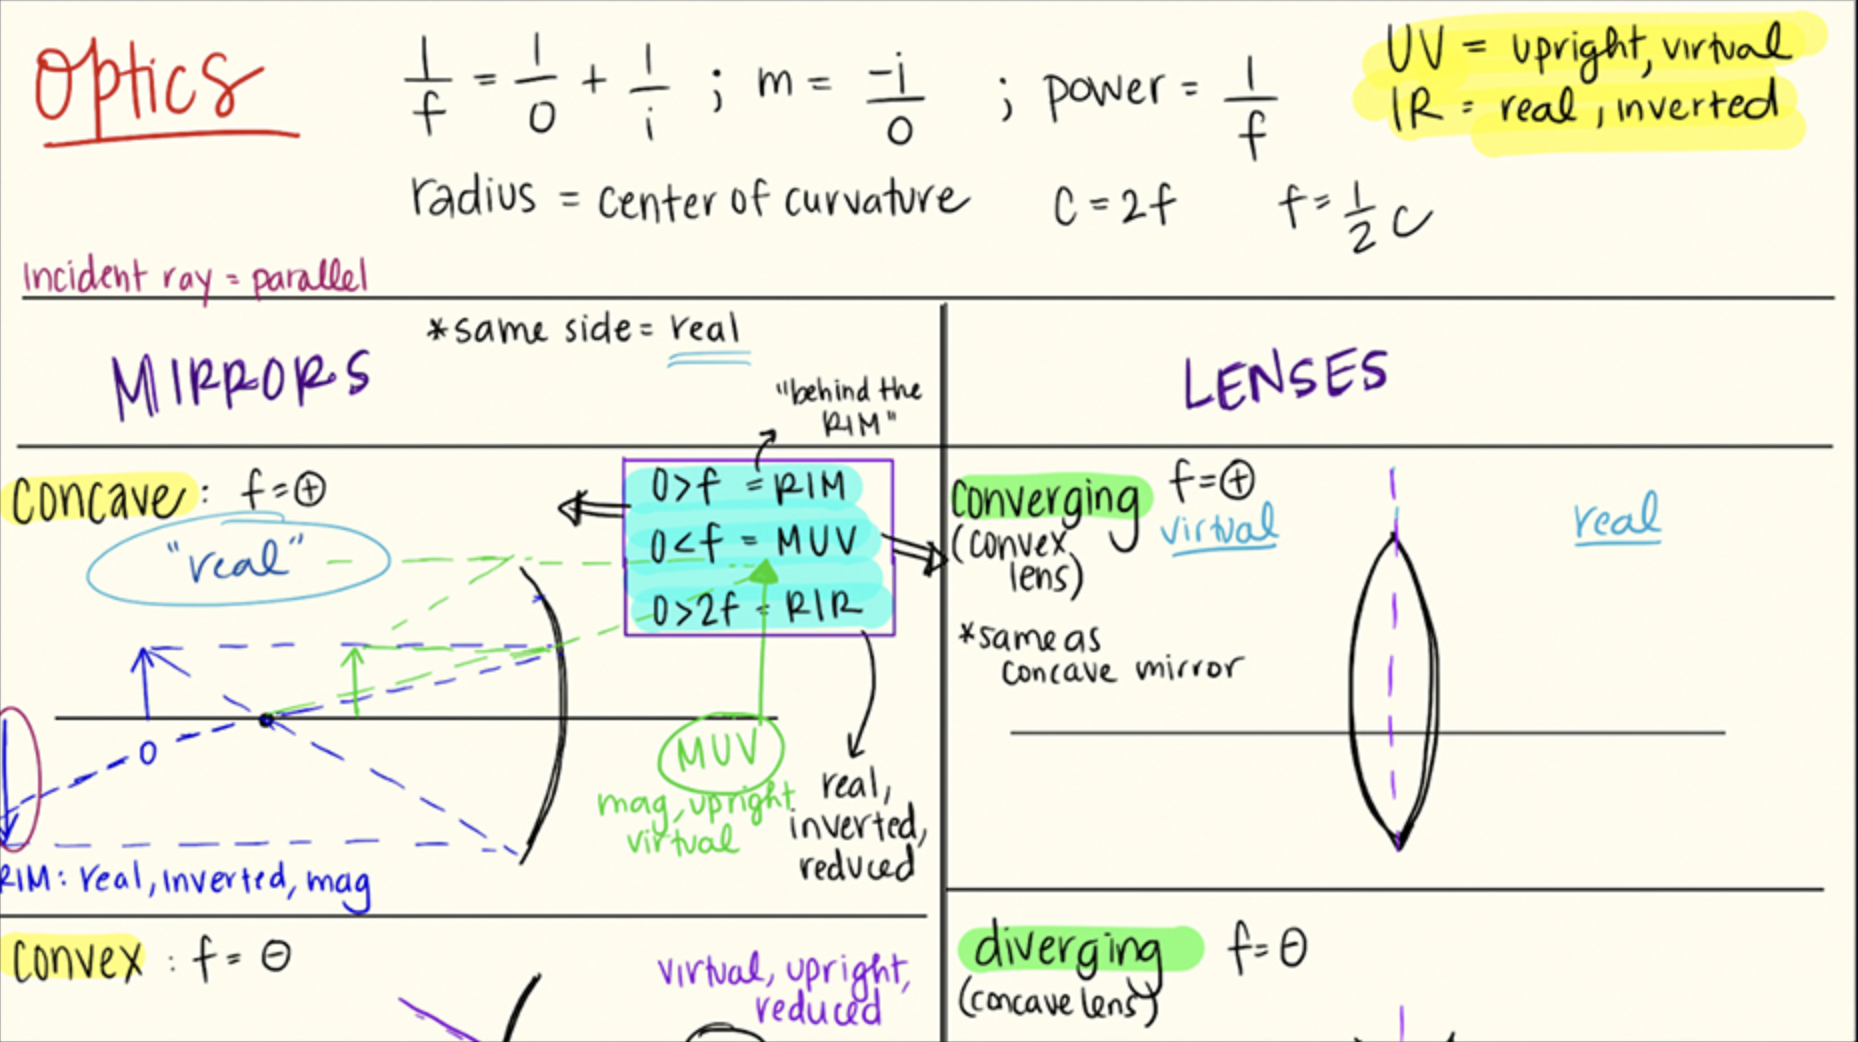 Optics
1/f = 1/o + 1/i ; m = -i/o ; power = 1/f
UV = upright, virtual
IR = real, inverted
radius = center of curvature C = 2f f = 1/2 C
Incident ray = parallel
MIRRORS
*same side = real
"behind the
RIM"
concave: f = ⊕
"real"
O>f = RIM
O<f = MUV
O>2f = RIR
O
MUV
mag, upright
virtual
real,
inverted,
reduced
RIM: real, inverted, mag
convex : f = ⊖
virtual, upright,
reduced
LENSES
converging f=⊕
(convex
lens)
virtual
real
*same as
concave mirror
diverging f=⊖
(concave lens)